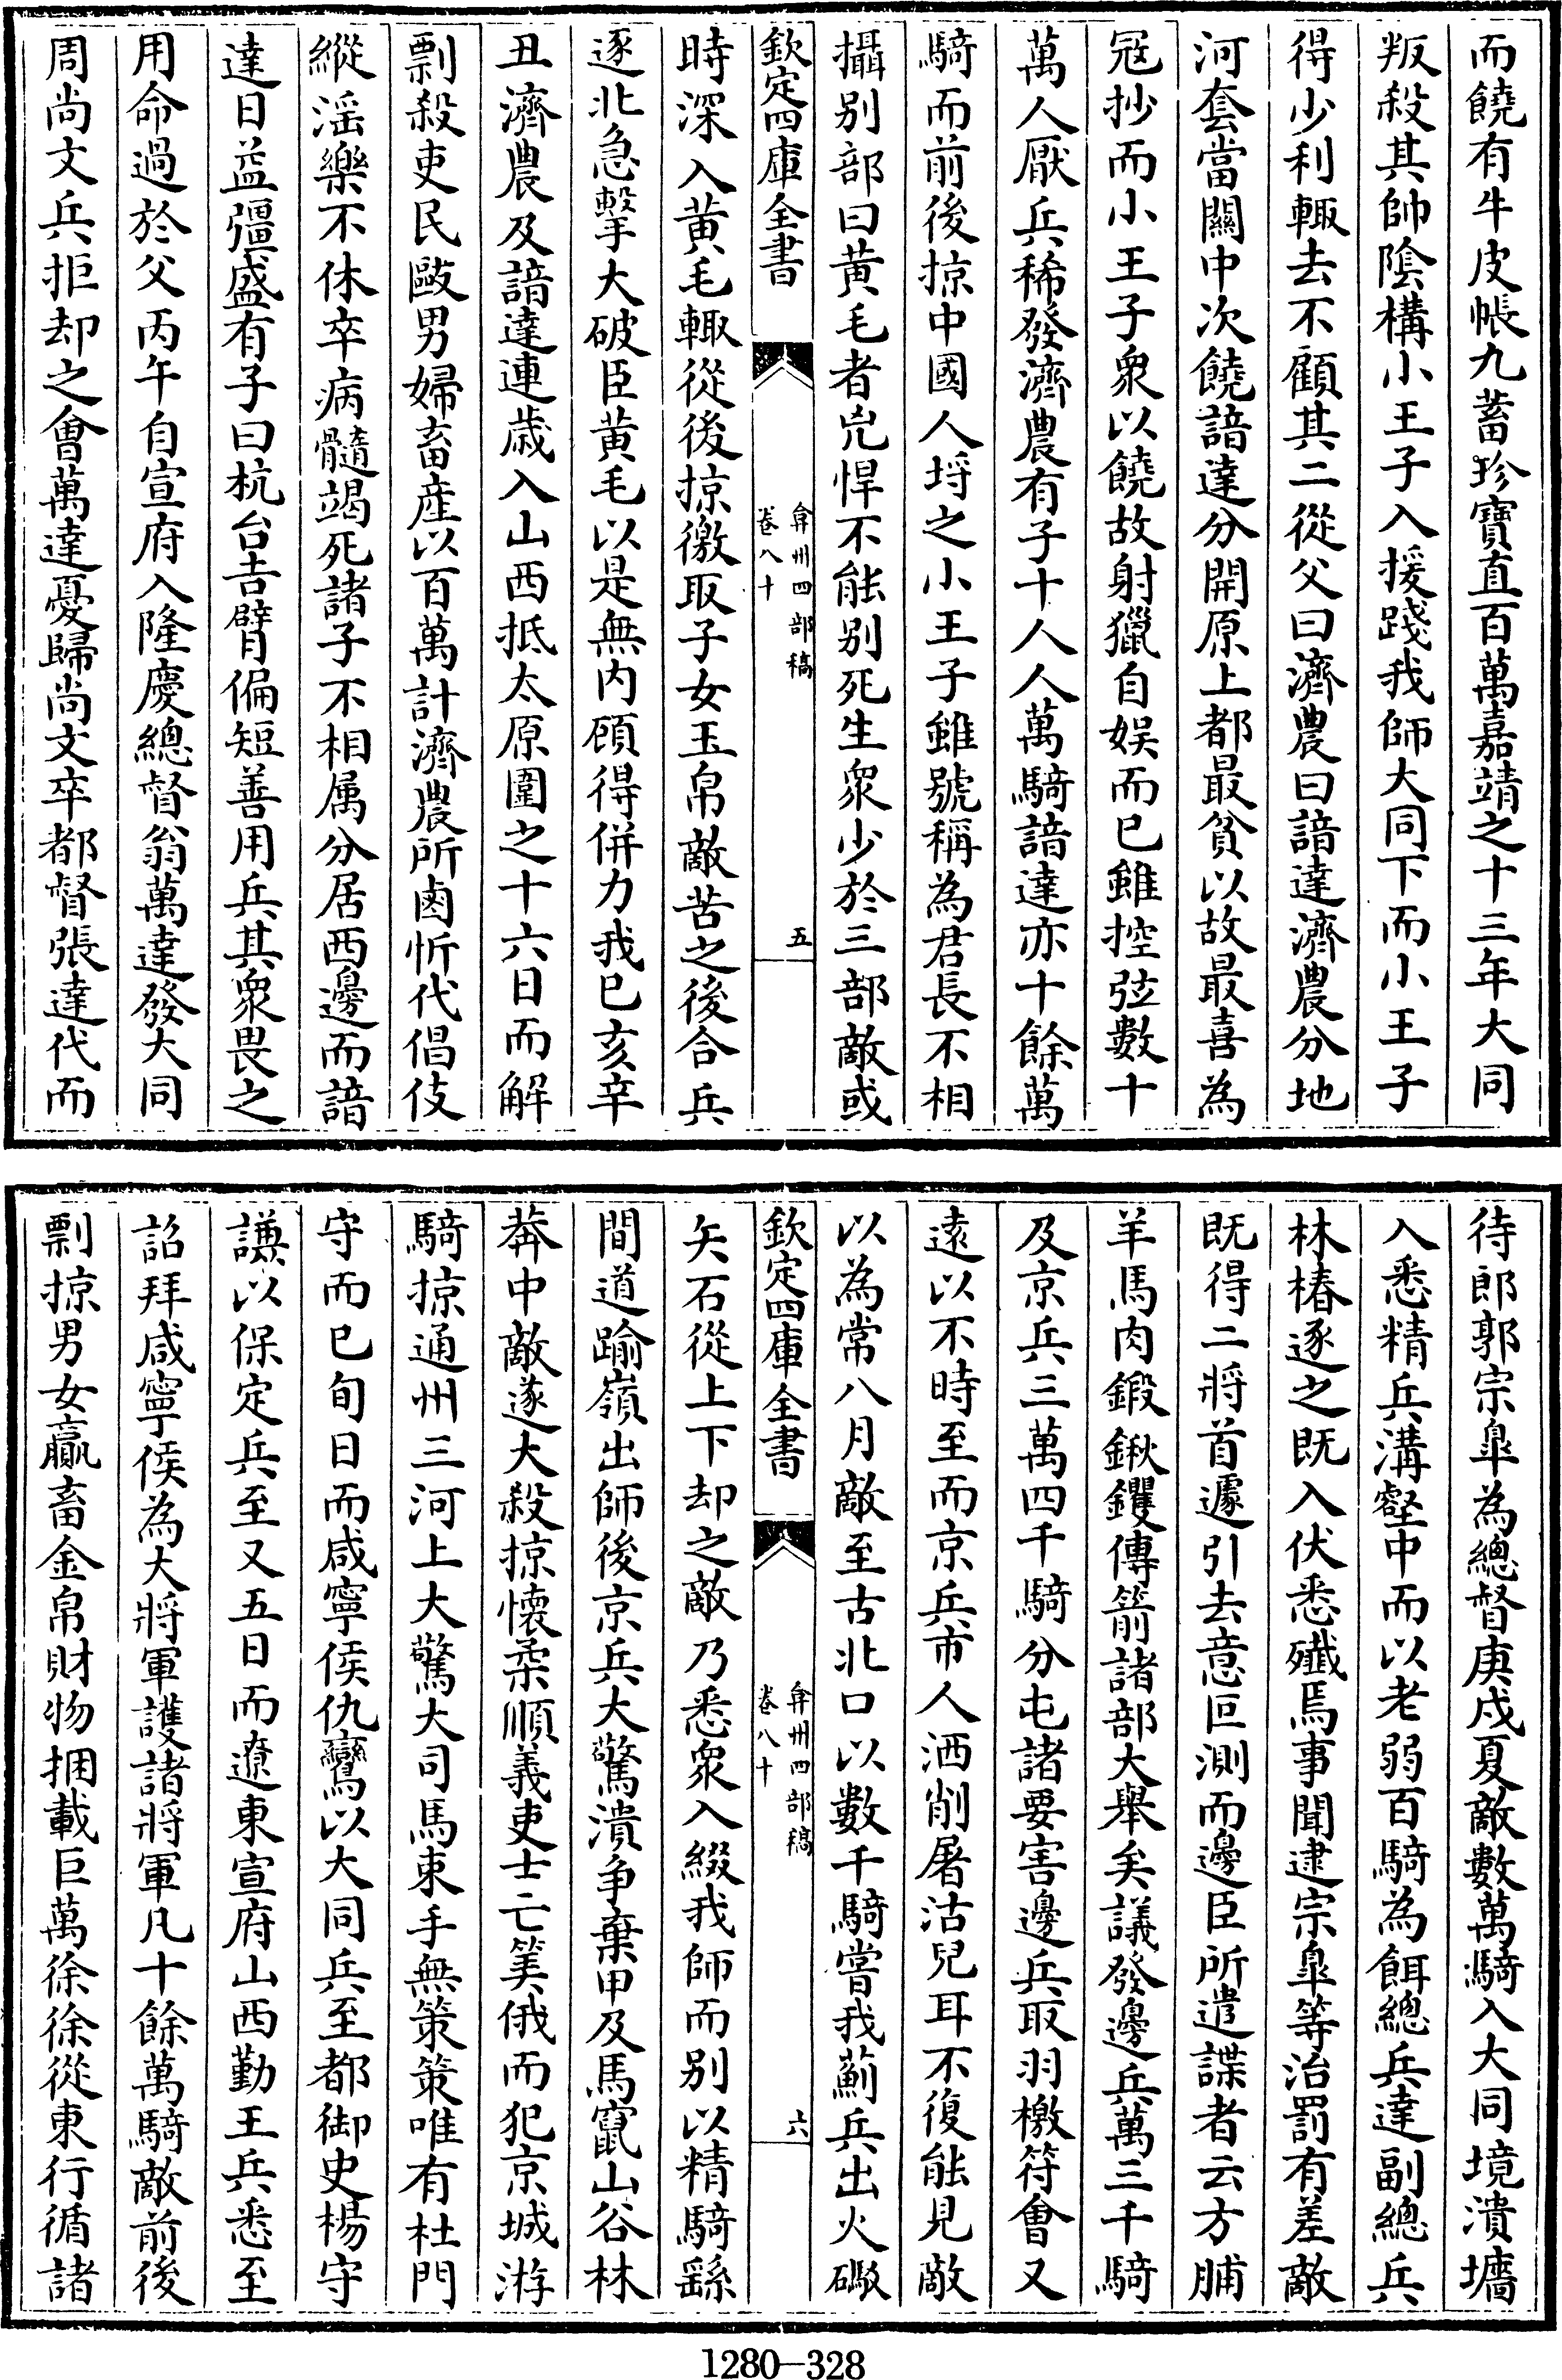 而饒有牛皮帳九蓄珍寶直百萬嘉靖之十三年大同
叛殺其帥陰構小王子入援踐我師大同下而小王子
得少利輙去不顧其二從父曰濟農曰諳達濟農分地
河套當關中次饒諳達分開原上都最貧以故最喜為
冦抄而小王子衆以饒故射獵自娛而已雖控弦數十
萬人厭兵稀發濟農有子十人人萬騎諳達亦十餘萬
騎而前後掠中國人埒之小王子雖號稱為君長不相
攝别部曰黄毛者兇悍不能别死生衆少於三部敵或
欽定四庫全書
弇州四部稿
卷八十
五
時深入黄毛輙從後掠徼取子女玉帛敵苦之後合兵
逐北急擊大破臣黄毛以是無内顧得併力我已亥辛
丑濟農及諳達連歳入山西抵太原圍之十六日而解
剽殺吏民敺男婦畜産以百萬計濟農所鹵忻代倡伎
縱滛樂不休卒病髓竭死諸子不相属分居西邊而諳
達日益彊盛有子曰杭台吉臂偏短善用兵其衆畏之
用命過於父丙午自宣府入隆慶總督翁萬達發大同
周尚文兵拒却之會萬達憂歸尚文卒都督張達代而
待郎郭宗臯為總督庚戍夏敵數萬騎入大同境潰墻
入悉精兵溝壑中而以老弱百騎為餌總兵達副總兵
林椿逐之既入伏悉殱焉事聞逮宗臯等治罰有差敵
既得二將首遽引去意叵測而邊臣所遣諜者云方脯
羊馬肉鍜鍬钁傳箭諸部大舉矣議發邊兵萬三千騎
及京兵三萬四千騎分屯諸要害邊兵取羽檄符會又
逺以不時至而京兵市人洒削屠沽兒耳不復能見敵
以為常八月敵至古北口以數千騎嘗我薊兵出火礟
欽定四庫全書
弇州四部稿
卷八十
六
矢石從上下却之敵乃悉衆入綴我師而别以精騎繇
間道踰嶺出師後京兵大驚潰争棄甲及馬竄山谷林
莽中敵遂大殺掠懷柔順義吏士亡筭俄而犯京城游
騎掠通州三河上大驚大司馬束手無策策唯有杜門
守而已旬日而咸寧侯仇鸞以大同兵至都御史楊守
謙以保定兵至又五日而遼東宣府山西勤王兵悉至
詔拜咸寧侯為大將軍護諸將軍凡十餘萬騎敵前後
剽掠男女驘畜金帛財物捆載巨萬徐徐從東行循諸
1280-328